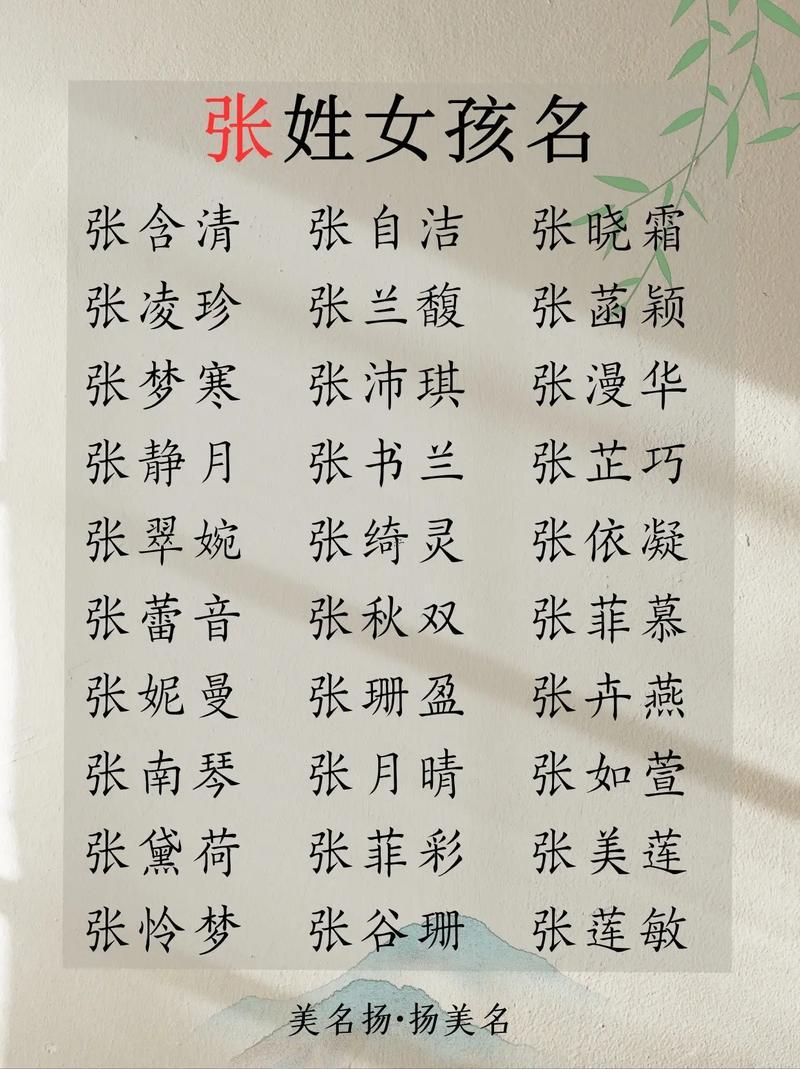 张姓女孩名
张含清 张自洁 张晓霜
张凌珍 张兰馥 张菡颖
张梦寒 张沛琪 张漫华
张静月 张书兰 张芷巧
张翠婉 张绮灵 张依凝
张蕾音 张秋双 张菲慕
张妮曼 张珊盈 张卉燕
张南琴 张月晴 张如萱
张黛荷 张菲彩 张美莲
张怜梦 张谷珊 张莲敏
美名扬·扬美名